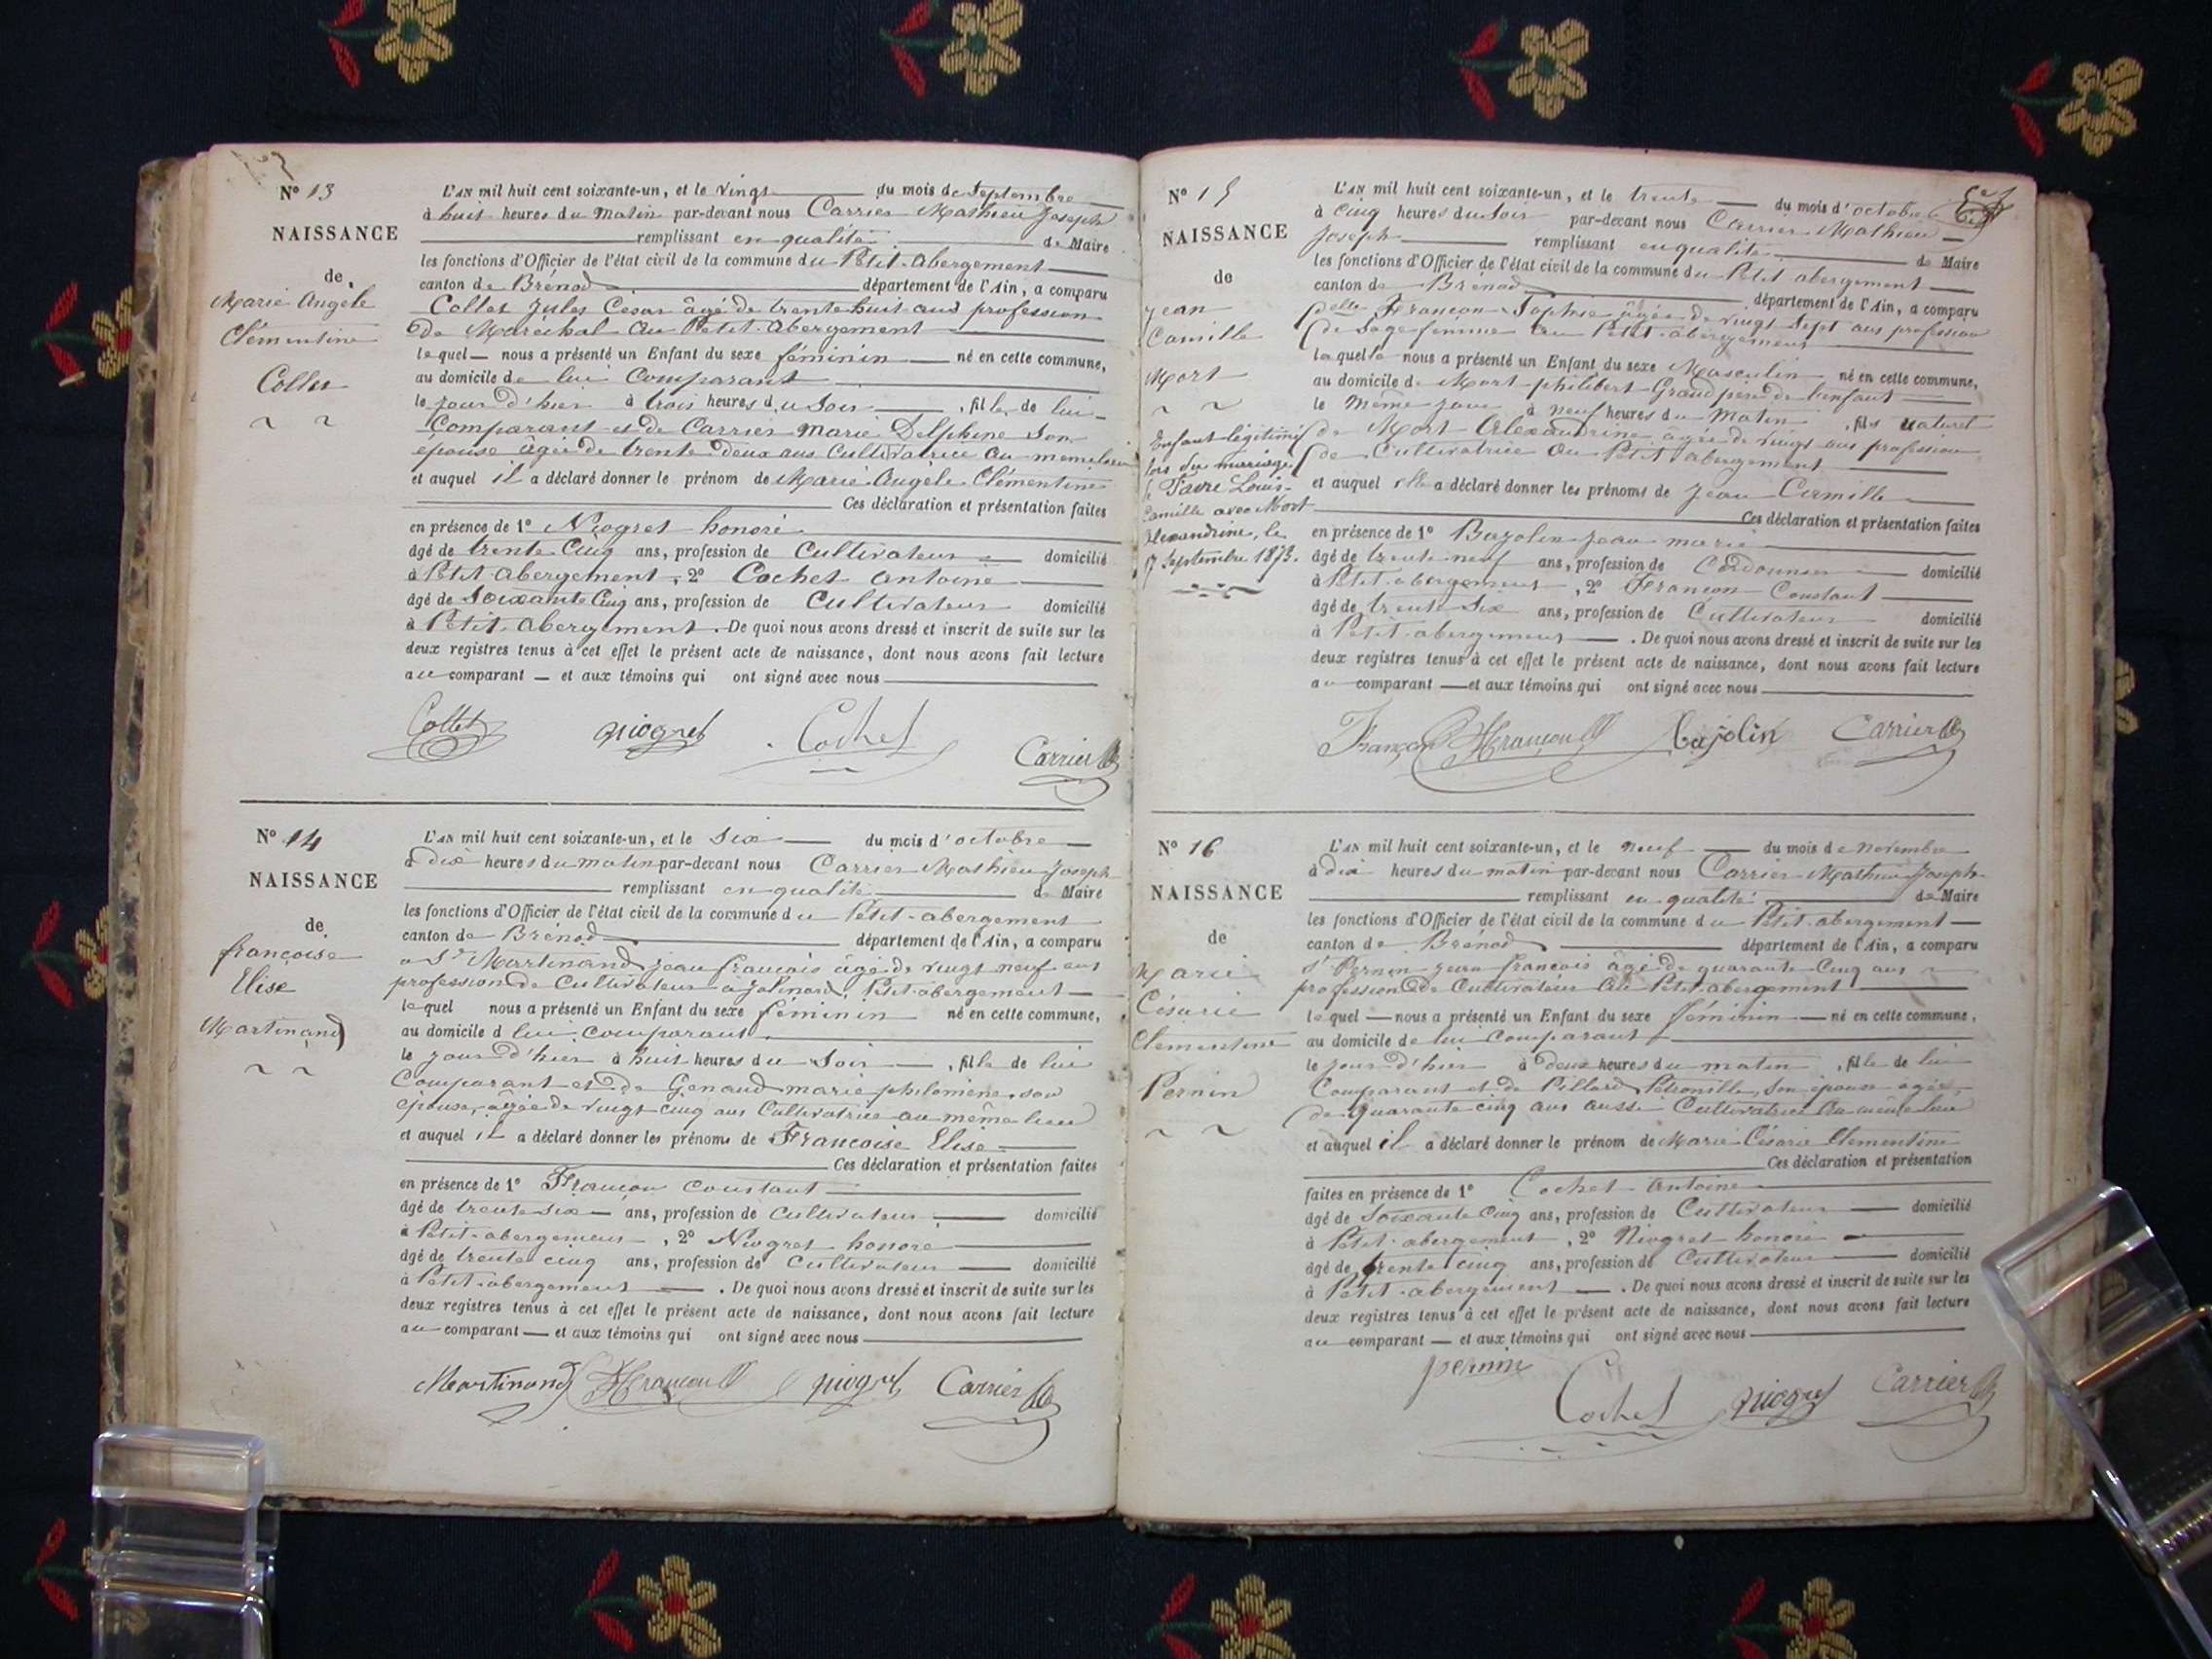 N° 13
NAISSANCE
de
Marie Angèle
Clémentine
Collet
L'AN mil huit cent soixante-un, et le vingt du mois de Septembre
à huit heures du matin par-devant nous Carrier Mathieu Joseph
remplissant en qualité de Maire
les fonctions d'Officier de l'état civil de la commune du Petit-Abergement
canton de Brénod département de l'Ain, a comparu
Collet Jules César âgé de trente huit ans profession
de Maréchal au Petit-Abergement
lequel nous a présenté un Enfant du sexe féminin né en cette commune,
au domicile de lui Comparant
le jour d'hier à trois heures du Soir, fille de lui
Comparant et de Carrier Marie Delphine Son
épouse âgée de trente deux ans Cultivatrice au même lieu
et auquel il a déclaré donner le prénom de Marie Angèle Clémentine
Ces déclaration et présentation faites
en présence de 1° Niogret honoré
âgé de trente Cinq ans, profession de Cultivateur domicilié
à Petit Abergement, 2° Cochet Antoine
âgé de Soixante Cinq ans, profession de Cultivateur domicilié
à Petit-Abergement. De quoi nous avons dressé et inscrit de suite sur les
deux registres tenus à cet effet le présent acte de naissance, dont nous avons fait lecture
au comparant — et aux témoins qui ont signé avec nous
Collet niogret Cochet Carrier
N° 14
NAISSANCE
de
françoise
Elise
Martinand
L'AN mil huit cent soixante-un, et le Six du mois d'octobre
à dix heures du matin par-devant nous Carrier Mathieu Joseph
remplissant en qualité de Maire
les fonctions d'Officier de l'état civil de la commune du Petit-abergement
canton de Brénod département de l'Ain, a comparu
Sr Martinand jean françois âgé de vingt neuf ans
profession de Cultivateur à Jalinard, Petit-abergement
lequel nous a présenté un Enfant du sexe féminin né en cette commune,
au domicile d lui comparant
le jour d'hier à huit heures du Soir, fille de lui
Comparant et de Genaud marie philomène, son
épouse, âgée de vingt cinq ans Cultivatrice au même lieu
et auquel il a déclaré donner les prénoms de Françoise Elise
Ces déclaration et présentation faites
en présence de 1° Françon Constant
âgé de trente Six ans, profession de Cultivateur domicilié
à Petit-abergement, 2° Niogret honoré
âgé de trente cinq ans, profession de Cultivateur domicilié
à Petit-abergement. De quoi nous avons dressé et inscrit de suite sur les
deux registres tenus à cet effet le présent acte de naissance, dont nous avons fait lecture
au comparant — et aux témoins qui ont signé avec nous
Martinand Françon niogret Carrier
N° 15
NAISSANCE
de
Jean
Camille
Mort
Enfant légitimé
lors du mariage
de Favre Louis-
Camille avec Mort
Alexandrine, le
17 Septembre 1873.
L'AN mil huit cent soixante-un, et le trente du mois d'octobre
à Cinq heures du Soir par-devant nous Carrier Mathieu
Joseph remplissant en qualité de Maire
les fonctions d'Officier de l'état civil de la commune du Petit abergement
canton de Brénod département de l'Ain, a comparu
Delle Françon Sophie âgée de vingt Sept ans profession
de Sage-femme au Petit-abergement
laquelle nous a présenté un Enfant du sexe Masculin né en cette commune,
au domicile de Mort philibert Grand père de l'enfant
le même jour à neuf heures du Matin, fils naturel
de Mort Alexandrine âgée de vingt ans profession
de Cultivatrice au Petit abergement
et auquel elle a déclaré donner les prénoms de Jean Camille
Ces déclaration et présentation faites
en présence de 1° Bajolin Jean marie
âgé de trente neuf ans, profession de Cordonnier domicilié
à Petit-abergement, 2° Françon Constant
âgé de trente Six ans, profession de Cultivateur domicilié
à Petit-abergement. De quoi nous avons dressé et inscrit de suite sur les
deux registres tenus à cet effet le présent acte de naissance, dont nous avons fait lecture
au comparant — et aux témoins qui ont signé avec nous
Françon Françon bajolin Carrier
N° 16
NAISSANCE
de
Marie
Césarie
Clementine
Pernin
L'AN mil huit cent soixante-un, et le neuf du mois de novembre
à dix heures du matin par-devant nous Carrier Mathieu Joseph
remplissant en qualité de Maire
les fonctions d'Officier de l'état civil de la commune du Petit-abergement
canton de Brénod département de l'Ain, a comparu
Sr Pernin jean françois âgé de quarante Cinq ans
profession de Cultivateur au Petit-abergement
lequel — nous a présenté un Enfant du sexe féminin — né en cette commune,
au domicile de lui Comparant
le jour d'hier à deux heures du matin, fille de lui
Comparant et de Pillard Pétronille, Son épouse agée
de quarante cinq ans aussi Cultivatrice au même lieu
et auquel il a déclaré donner le prénom de Marie Césarie Clementine
Ces déclaration et présentation
faites en présence de 1° Cochet Antoine
âgé de Soixante Cinq ans, profession de Cultivateur domicilié
à Petit-abergement, 2° Niogret honoré
âgé de trente cinq ans, profession de Cultivateur domicilié
à Petit-abergement. De quoi nous avons dressé et inscrit de suite sur les
deux registres tenus à cet effet le présent acte de naissance, dont nous avons fait lecture
au comparant — et aux témoins qui ont signé avec nous
pernin
Cochet niogret Carrier